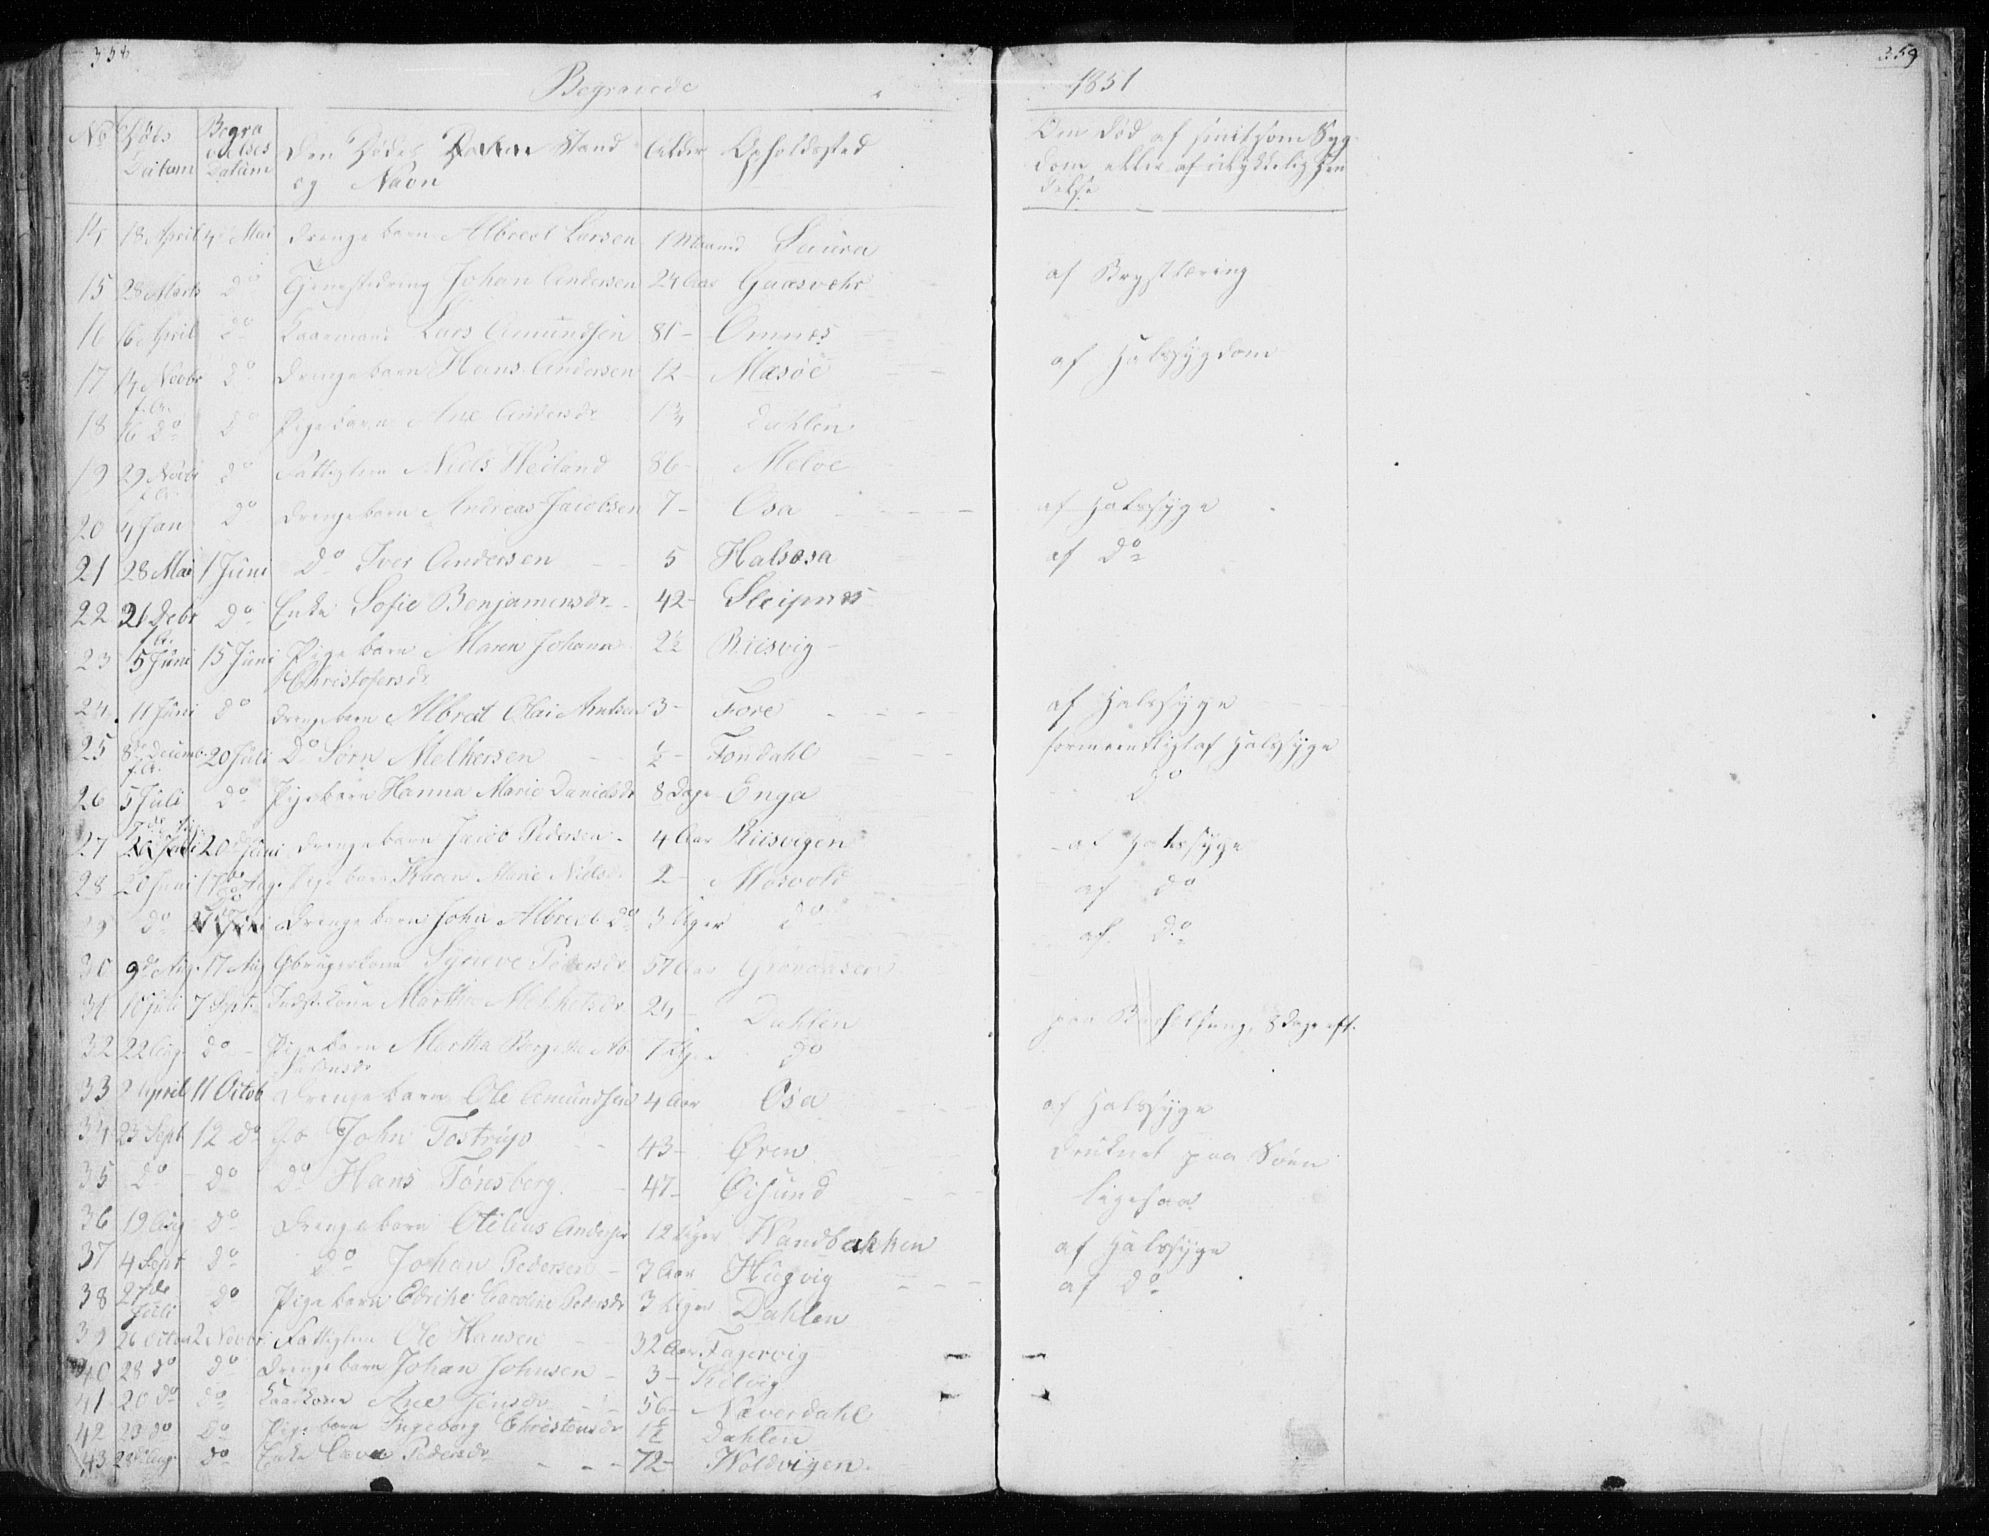 358
359
Begravede
1851
No Døds Datum Begravelses Datum Den Dødes Stand og Navn Alder Opholdssted
Den Død af smitsom Syg
dom eller af ulykkelig Hæn
delse
14 18 April 4 Mai Drengebarn Albrect Larsen 1 Maaned Saura
15 28 Marts Do Tjenestedreng Johan Andersen 24 Aar Gaasvær af Brysttæring
16 16 April Do Kaarmand Lars Amundsen 81 - Omnes
17 14 Novbr f. A. Do Drengebarn Hans Andersen 12 - Mæsøe af Halssygdom
18 16 Do Do Pigebarn Ane Andersdr Dahlen
19 29 Novbr Do Fattiglem Niels Weiland 86 - Meløe
20 4 Jan Do Drengebarn Andreas Jacobsen 7 - Osa af Halssyge
21 28 Mai 1 Juni Do Iver Andersen 5 Halsosa af Do
22 31 Debr f. A. Do Enke Sofie Benjaminsdr 42 - Sleipnes
23 5 Juni 15 Juni Pigebarn Maren Johanna 2½ Riisvig
Christofersdr
24 11 Juni Do Drengebarn Albrect Olai Arntsen 3 - Fore af Halssyge
25 8de Decemb. f. A. 20 Juli Do Sørn Melkersen ½ - Fondahl formeentligt af Halssyge
26 5 Juli Do Pigebarn Hanna Marie Danielsdr 8 Dage Enga Do
27 20 Juni Drengebarn Jacob Pedersen 4 Aar Riisvigen af Halssyge
28 20 Juni 17 Aug. Pigebarn Karen Marie Nielsdr 2 - Mosvold af Do
29 Do Drengebarn John Albrect Do 3 Uger Do af Do
30 9de Aug. 17 Aug Gbrugerkone Pedersdr 57 Aar Grønaasen
31 10 Juli 7 Sept. Martha Melkersdr 24 - Dahlen paa Barselseng, 8 Dage eft.
32 22 Aug Do Pigebarn Martha 7 Uger Do
33 2 April 11 Octob Drengebarn Ole Amundsen 4 Aar Osa af Halssyge
34 23 Sept 12 Do John Tostrup 43 - Øren Druknet paa Søen
35 Do Do Do Hans Tønsberg 47 - Øisund ligesaa
36 19 Aug Do Drengebarn Otilius Andersen 12 Uger Wandbakken af Halssyge
37 4 Sept Do Do Johan Pedersen 3 Aar Hugvig af Do
38 27de Juli Do Pigebarn Caroline Pedersdr 3 Uger Dahlen
39 26 Octob 2 Novbr Fattiglem Ole Hansen 32 Aar Fagervig
40 28 Do Do Drengebarn Johan Johnsen 3 - Kilvig
41 20 Do Do Kaarkone Ane Jensdr 56 - Næverdahl
42 23 Do Do Pigebarn Ingeborg Christensdr 1½ Dahlen
43 28 Aug. Do Enke Pedersdr 72 - Woldvigen